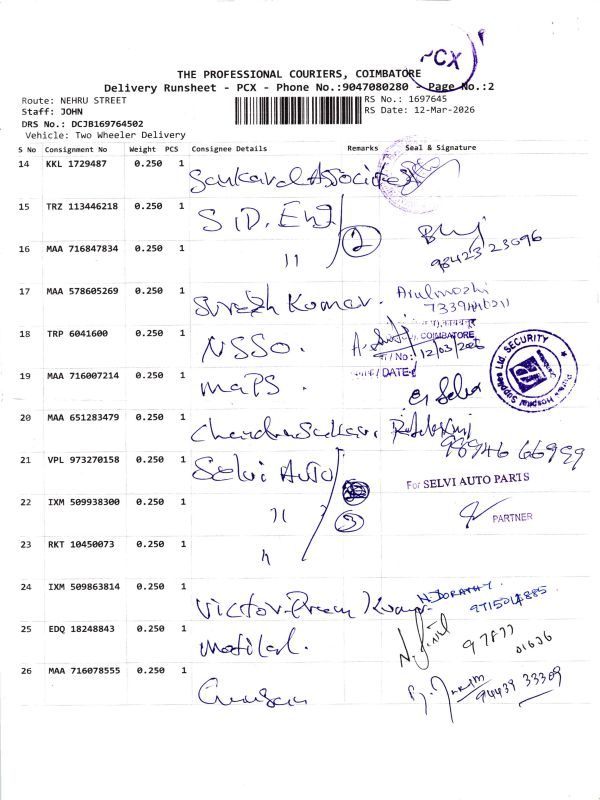 PCX
THE PROFESSIONAL COURIERS, COIMBATORE
Delivery Runsheet - PCX - Phone No.:9047080280 - Page No.:2
Route: NEHRU STREET
RS No.: 1697645
Staff: JOHN
RS Date: 12-Mar-2026
DRS No.: DCJB169764502
Vehicle: Two Wheeler Delivery
S No Consignment No Weight PCS Consignee Details Remarks Seal & Signature
14 KKL 1729487 0.250 1
15 TRZ 113446218 0.250 1 S iD. Enf 2
16 MAA 716847834 0.250 1 11 98423 23096
17 MAA 578605269 0.250 1 Suresh Kumar. Arulmozhi
18 TRP 6041600 0.250 1 NSSO. COIMBATORE
No: 12/03/2026
19 MAA 716007214 0.250 1 maPS. / DATE
Hospital Supplies Ltd. SECURITY
20 MAA 651283479 0.250 1 98946 66999
21 VPL 973270158 0.250 1 Selvi Auto
For SELVI AUTO PARTS
22 IXM 509938300 0.250 1 11 3
PARTNER
23 RKT 10450073 0.250 1 11
24 IXM 509863814 0.250 1 Victor
25 EDQ 18248843 0.250 1 Motilal.
26 MAA 716078555 0.250 1 94439 33309